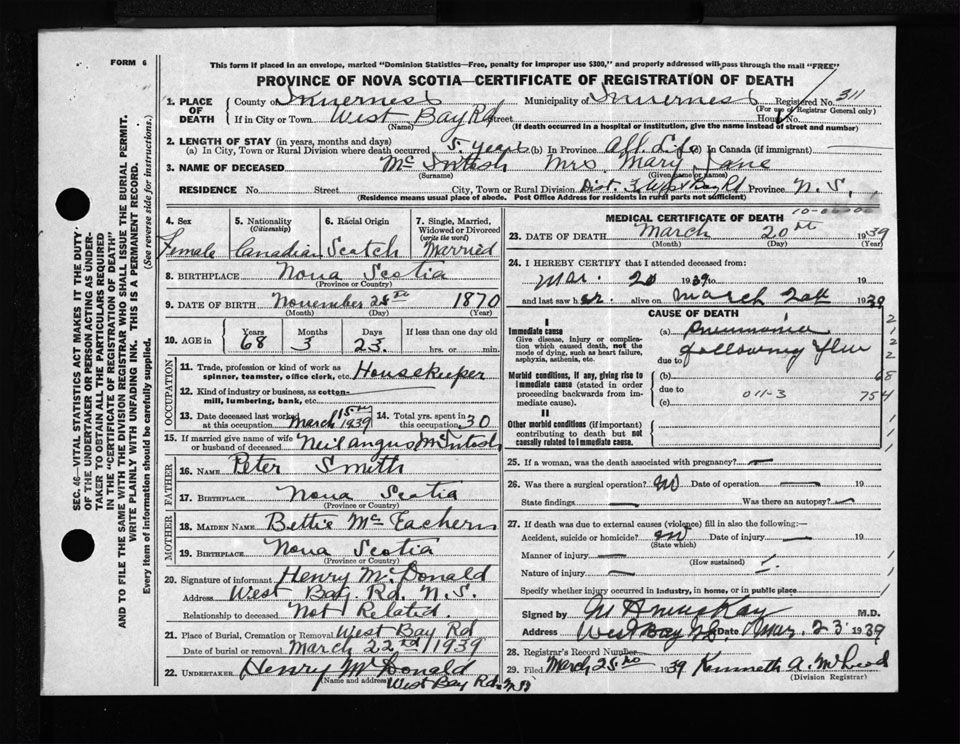 FORM 6
This form if placed in an envelope, marked "Dominion Statistics—Free, penalty for improper use $300," and properly addressed will pass through the mail "FREE"
PROVINCE OF NOVA SCOTIA—CERTIFICATE OF REGISTRATION OF DEATH
1. PLACE OF DEATH
County of Inverness Municipality of Inverness Registered No. 311
(For use of Registrar General only)
If in City or Town West Bay Rd Street House No.
(Name) (If death occurred in a hospital or institution, give the name instead of street and number)
2. LENGTH OF STAY (in years, months and days)
(a) In City, Town or Rural Division where death occurred 5 years (b) In Province All Life (c) In Canada (if immigrant)
3. NAME OF DECEASED McIntosh Mrs Mary Jane
(Surname) (Given name or names)
RESIDENCE No. Street City, Town or Rural Division Dist. 3, West Bay Rd Province N.S.
(Residence means usual place of abode. Post Office Address for residents in rural parts not sufficient)
4. Sex Female
5. Nationality (Citizenship) Canadian
6. Racial Origin Scotch
7. Single, Married, Widowed or Divorced (write the word) Married
8. BIRTHPLACE Nova Scotia
(Province or Country)
9. DATE OF BIRTH November 25th 1870
(Month) (Day) (Year)
10. AGE in Years 68 Months 3 Days 23 If less than one day old hrs. or min.
OCCUPATION
11. Trade, profession or kind of work as spinner, teamster, office clerk, etc. Housekeeper
12. Kind of industry or business, as cotton-mill, lumbering, bank, etc.
13. Date deceased last worked at this occupation March 15th 1939 14. Total yrs. spent in 30
15. If married give name of wife or husband of deceased Neil Angus McIntosh
FATHER
16. NAME Peter Smith
17. BIRTHPLACE Nova Scotia
(Province or Country)
MOTHER
18. MAIDEN NAME Bettie McEachern
19. BIRTHPLACE Nova Scotia
(Province or Country)
20. Signature of informant Henry McDonald
Address West Bay Rd. N.S.
Relationship to deceased Not Related
21. Place of Burial, Cremation or Removal West Bay Rd
Date of burial or removal March 22nd 1939
22. UNDERTAKER Henry McDonald
(Name and address) West Bay Rd. N.S.
MEDICAL CERTIFICATE OF DEATH
23. DATE OF DEATH March 20th 1939
(Month) (Day) (Year)
24. I HEREBY CERTIFY that I attended deceased from:
Mar. 20 1939 to 19
and last saw her alive on March 20th 1939
CAUSE OF DEATH
I
Immediate cause
Give disease, injury or complication which caused death, not the mode of dying, such as heart failure, asphyxia, asthenia, etc.
(a) Pneumonia
following flu
due to
Morbid conditions, if any, giving rise to immediate cause (stated in order proceeding backwards from immediate cause).
(b)
due to
(c) 011-3 754
II
Other morbid conditions (if important) contributing to death but not causally related to immediate cause.
25. If a woman, was the death associated with pregnancy? —
26. Was there a surgical operation? No Date of operation — 19
State findings — Was there an autopsy? —
27. If death was due to external causes (violence) fill in also the following:—
Accident, suicide or homicide? no Date of injury — 19
(State which)
Manner of injury —
(How sustained)
Nature of injury —
Specify whether injury occurred in industry, in home, or in public place
Signed by M.D.
Address West Bay Date Mar. 23 1939
28. Registrar's Record Number
29. Filed March 25 1939 Kenneth A. McLeod
(Division Registrar)
SEC. 46—VITAL STATISTICS ACT MAKES IT THE DUTY OF THE UNDERTAKER OR PERSON ACTING AS UNDERTAKER TO OBTAIN ALL THE PARTICULARS REQUIRED IN THE "CERTIFICATE OF REGISTRATION OF DEATH"
AND TO FILE THE SAME WITH THE DIVISION REGISTRAR WHO SHALL ISSUE THE BURIAL PERMIT.
WRITE PLAINLY WITH UNFADING INK. THIS IS A PERMANENT RECORD.
Every item of information should be carefully supplied. (See reverse side for instructions.)